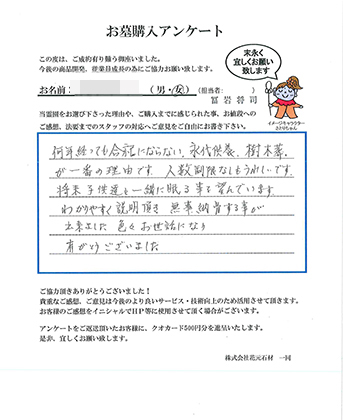 お墓購入アンケート
この度は、ご成約有り難う御座いました。
今後の商品開発、従業員成長の為にご協力お願い致します。
末永く
宜しくお願い
致します
お名前:
(男・女)
(担当者:
冨岩将司
イメージキャラクター
さとりちゃん
当霊園をお選び下さった理由や、ご購入までに感じられた事、お値段への
ご感想、法要までのスタッフの対応へご意見をご自由にお書き下さい。
何年経っても合祀にならない、永代供養、樹木葬
が一番の理由です 人数制限なしもうれしいです
将来子供達も一緒に眠る事を望んでいます
わかりやすく説明頂き 無事納骨する事が
出来ました 色々お世話になり
有がとうございました
ご協力頂きありがとうございました!
貴重なご感想、ご意見は今後のより良いサービス・技術向上のため活用させて頂きます。
お客様のご感想をイニシャルでHP等に使用させて頂く場合がございます。
アンケートをご返送頂いたお客様に、クオカード500円分を進呈いたします。
是非、宜しくお願い致します。
株式会社花元石材 一同